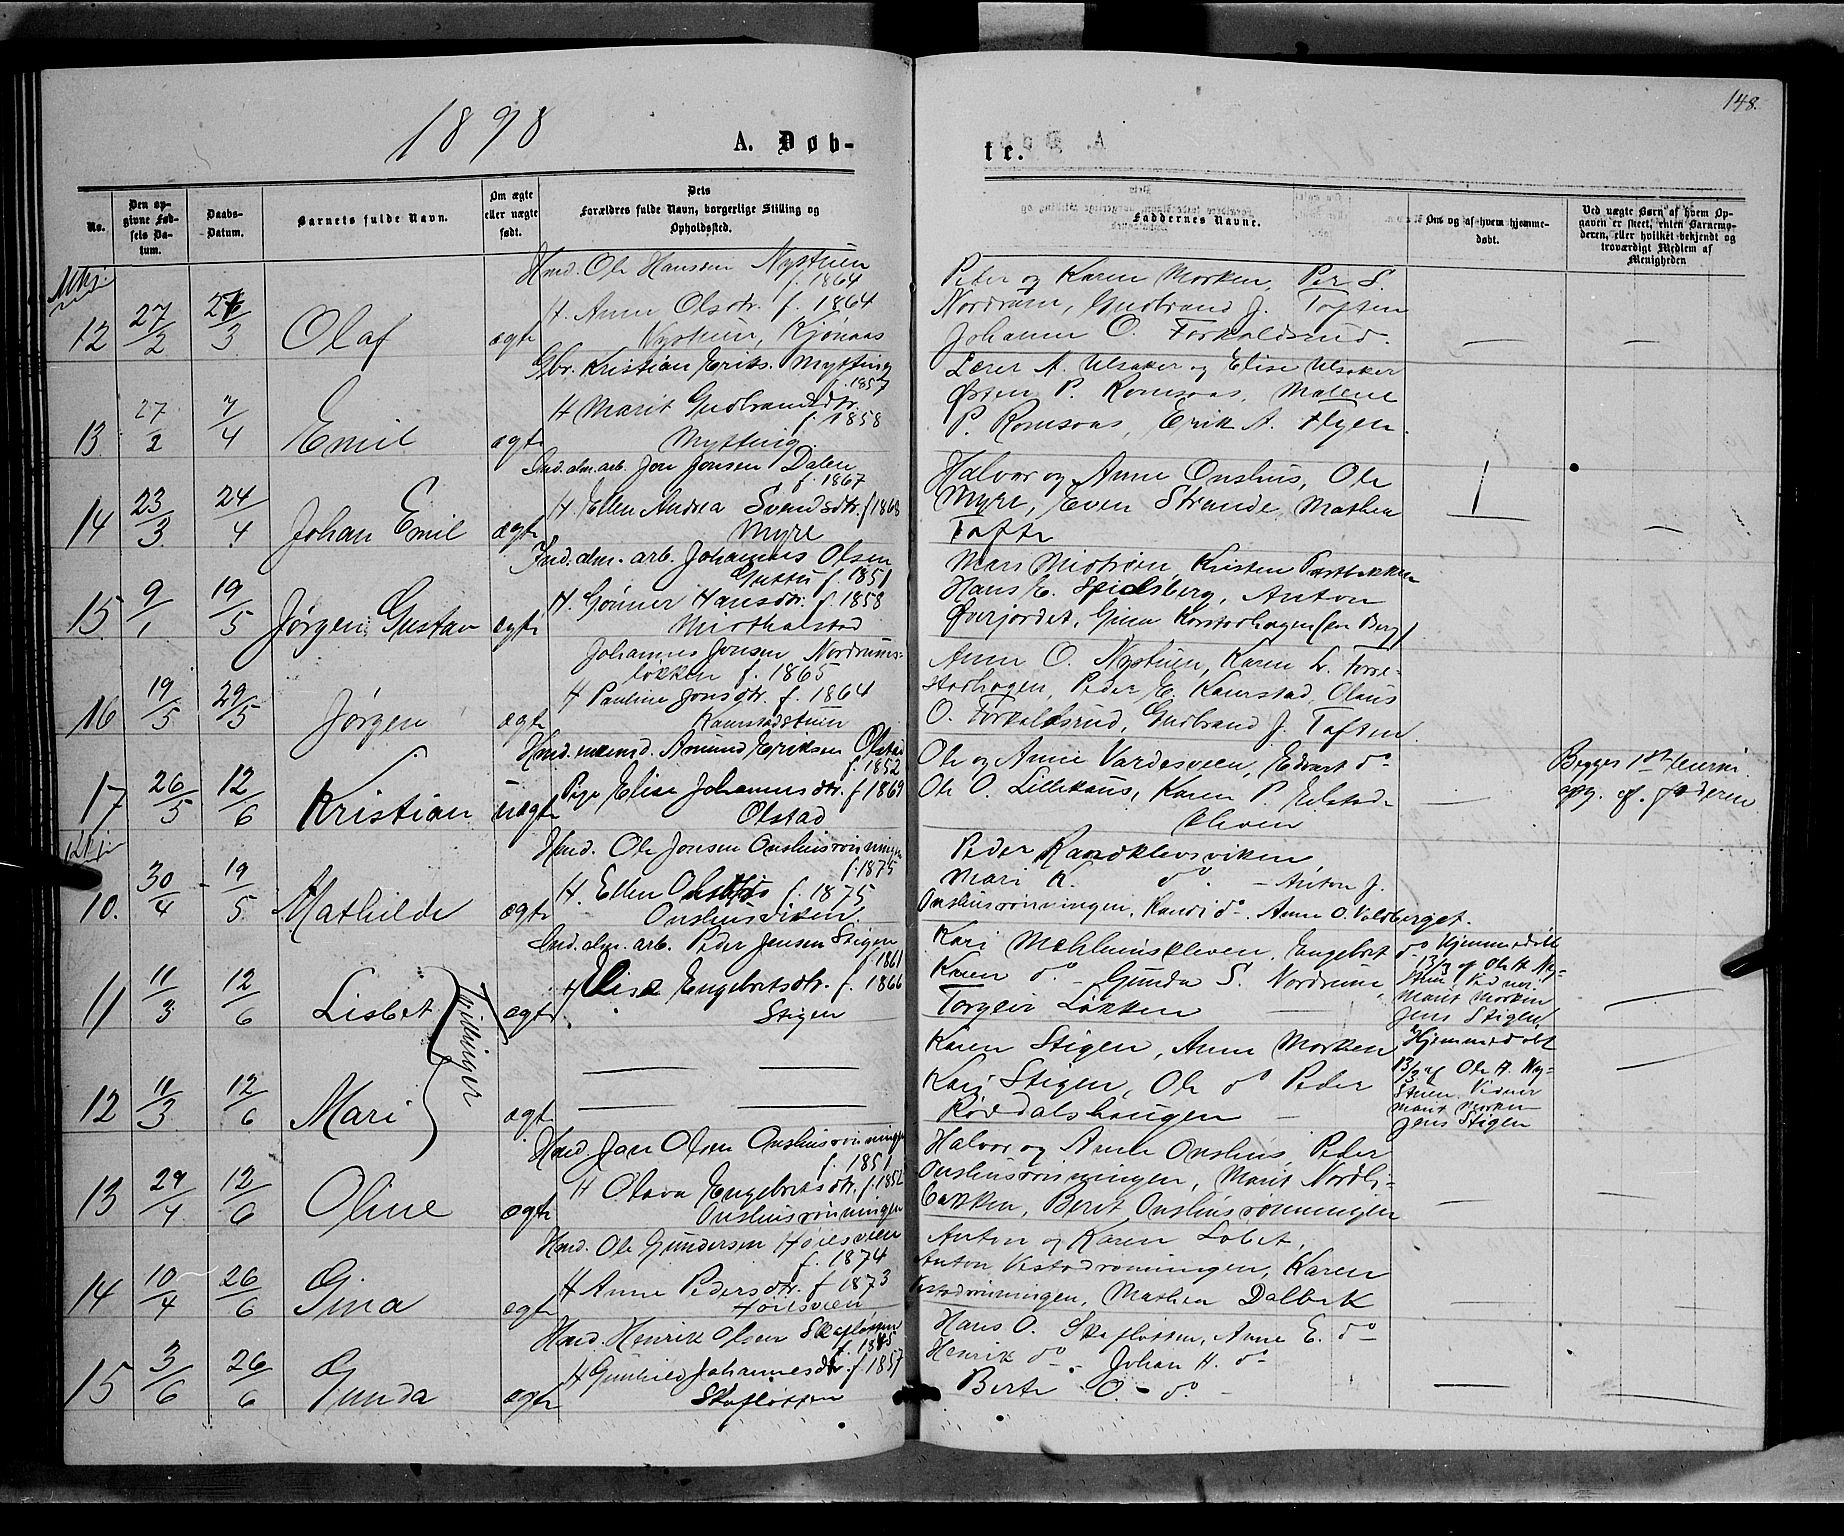 1898
A. Døb-
te.
148.
No.
Den op-
givne Fød-
sels Da-
tum.
Daabs-
Datum.
Barnets fulde Navn.
Om ægte
eller uægte
født.
Dets
Forældres fulde Navn, borgerlige Stilling og
Opholdssted.
Faddernes Navne.
Om og af hvem hjemme-
døbt.
Ved uægte Børn af hvem Op-
gaven er skeet, enten Barnemo-
deren, eller hvilket bekjendt og
troværdigt Medlem af
Menigheden
12 27/2 3 Olaf ægte
Hmd. Ole Hansen Nystuen
f. 1864
H. Anne Olsdtr. f. 1864
Nystuen, Kjønaas
Peder og Karen Morken, Per S.
Nordrum, Gudbrand J. Toften
Johanne O. Forkaldsrud.
—
—
13 27/2 7/4 Emil ægte
Gbr. Kristian Eriks. Mytting
f. 1857
H Marit Gudbrandsdtr.
f. 1858
Mytting
Lærer A. Ulsaker og Elise Ulsaker
Østen P. Romsaas, Malene
P. Romsaas, Erik A. Flyen.
14 23/3 24/4 Johan Emil ægte
Ind. alm. arb. Jon Jonsen Dalen
f. 1867
H. Ellen Andrea Svendsdtr. f 1868
Myre
Halvor og Anne Onshus, Ole
Myre, Even Strande, Mathea
Tofte
—
15 9/1 19/5 Jørgen Gustav ægte
Ind. alm. arb. Johannes Olsen
f. 1851
H. Gønner Hansdtr. f. 1858
Kristen
Hans E. Spidsberg, Anton
Øverjordet, Gina
16 19/5 29/5 Jørgen ægte
Johannes Jonsen Nordrums-
løkken f. 1865
H Pauline Jonsdtr. f. 1864
Kaurstadstuen
Anne O. Nystuen, Karen L. Forre-
stadhagen, Peder E. Kaurstad, Olaus
O. Forkaldsrud, Gudbrand J. Toften.
17 26/5 12/6 Kristian uægte
Amund Eriksen Olstad
f. 1852
Pige Elise Johannesdtr. f 1869
Olstad
Ole og Anne Vardesveen, Edvart do
Ole O. Lillehaus, Karen P. Eilstad-
kleven
—
Begges 1ste
opg. af Moderen
10. 30/4 19/5 Mathilde ægte
Hmd. Ole Jonsen Onshusrønningen
f. 1875
H. Ellen f. 1875
Onshusviken
Peder Randklevsviken,
Mari K. do. - Anton J.
Onshusrønningen, Randi do - Anne O. Voldberget.
11 11/3 12/6 Lisbet ægte
Tvillinger
Ind. alm. arb. Peder Jensen Stigen
f 1861
H Elise Engebretsdtr. f. 1866
Stigen
Kari Mehlumskleven, Engebret do
Karen do - Gunda S. Nordrum
Torgeir Løkken
Hjemmedøbt
13/3 af Ole H. Ny-
stuen, Vidner
Marit Morken
Jens Stigen
—
12 11/3 12/6 Mari ægte
—
—
Karen Stigen, Anne Morken
Kari Stigen, Ole do Peder
Rørdalshaugen
Hjemmedøbt
13/3 af Ole H. Ny-
stuen Vidner
Marit Morken
Jens Stigen
—
13 29/4 12/6 Oline ægte
Hmd. Jon Olsen Onshusrønningen
f. 1851
H Olava Engebretsdtr. f. 1852
Onshusrønningen
Halvor og Anne Onshus, Peder
Onshusrønningen, Marit Nordli-
bakken, Berit Onshusrønningen
—
—
14 10/4 26/6 Gina ægte
Hmd. Ole Gundersen Høilsveen
f. 1874
H Anne Pedersdtr. f 1873
Høilsveen
Anton og Karen Løbet,
Anton Vestadrønningen, Karen
Vestadrønningen, Mathea Dalbek
—
—
15 3/6 26/6 Gunda ægte
Hmd. Henrik Olsen Skaflotten
f. 1845
H Gunhild Johannesdtr. f 1857
Skaflotten
Hans O. Skaflotten, Anne E. do
Henrik do - Johan H. do
Berte O. - do. -
—
—